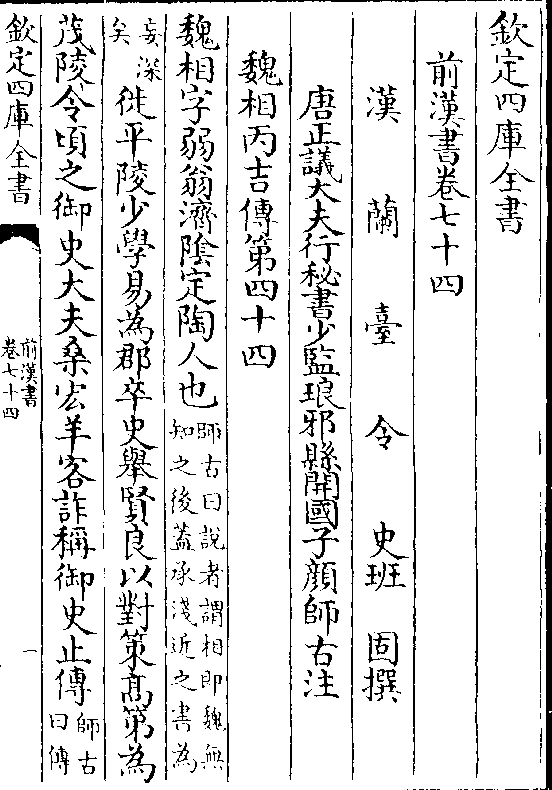 欽定四庫全書
前漢書卷七十四
漢蘭臺令史班固撰
唐正議大夫行秘書少監琅邪縣開國子顏師古注
魏相丙吉傳第四十四
魏相字弱翁濟陰定陶人也師古曰說者謂相即魏無
知之後蓋承淺近之書為
妄深
矣徙平陵少學易為郡卒史舉賢良以對策高第為
茂陵令頃之御史大夫桑宏羊客詐稱御史止傳師古
曰傳
欽定四庫全書
前漢書
卷七十四
一